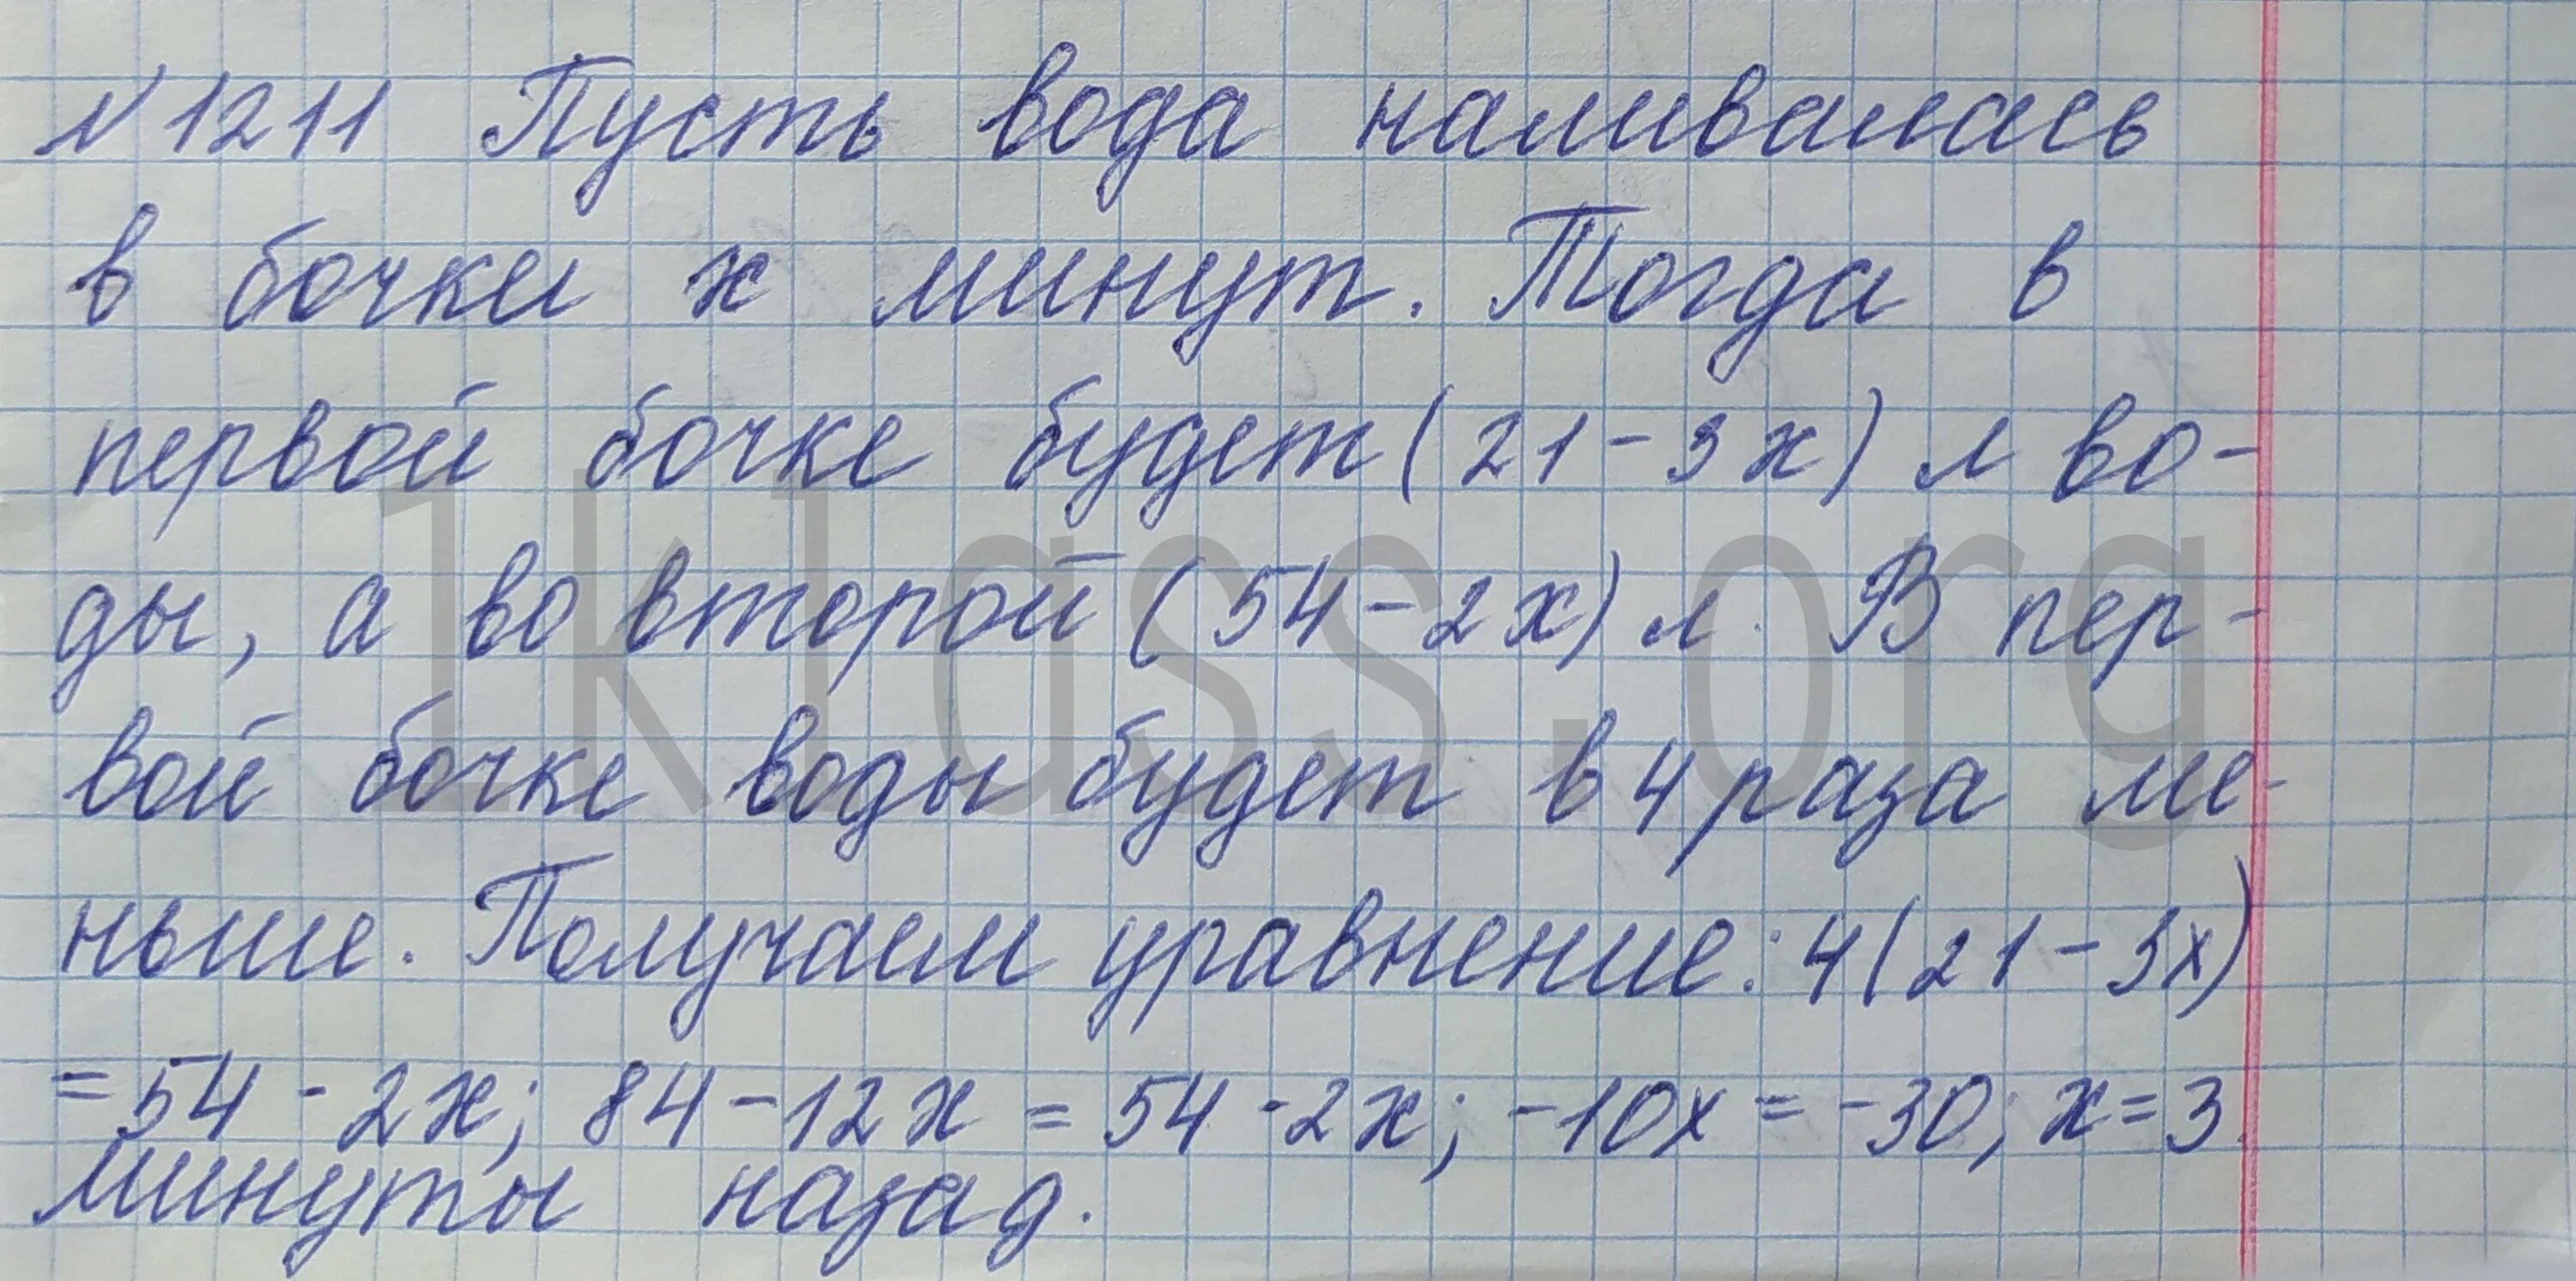 №1211 Пусть вода наливалась
в бочки х минут. Тогда в
первой бочке будет (21-3х) л во-
ды, а во второй (54-2х) л. В пер-
вой бочке воды будет в 4 раза ме-
ньше. Получаем уравнение: 4(21-3х)
=54-2х; 84-12х = 54-2х; -10х = -30; х=3
минуты назад.
1klass.org